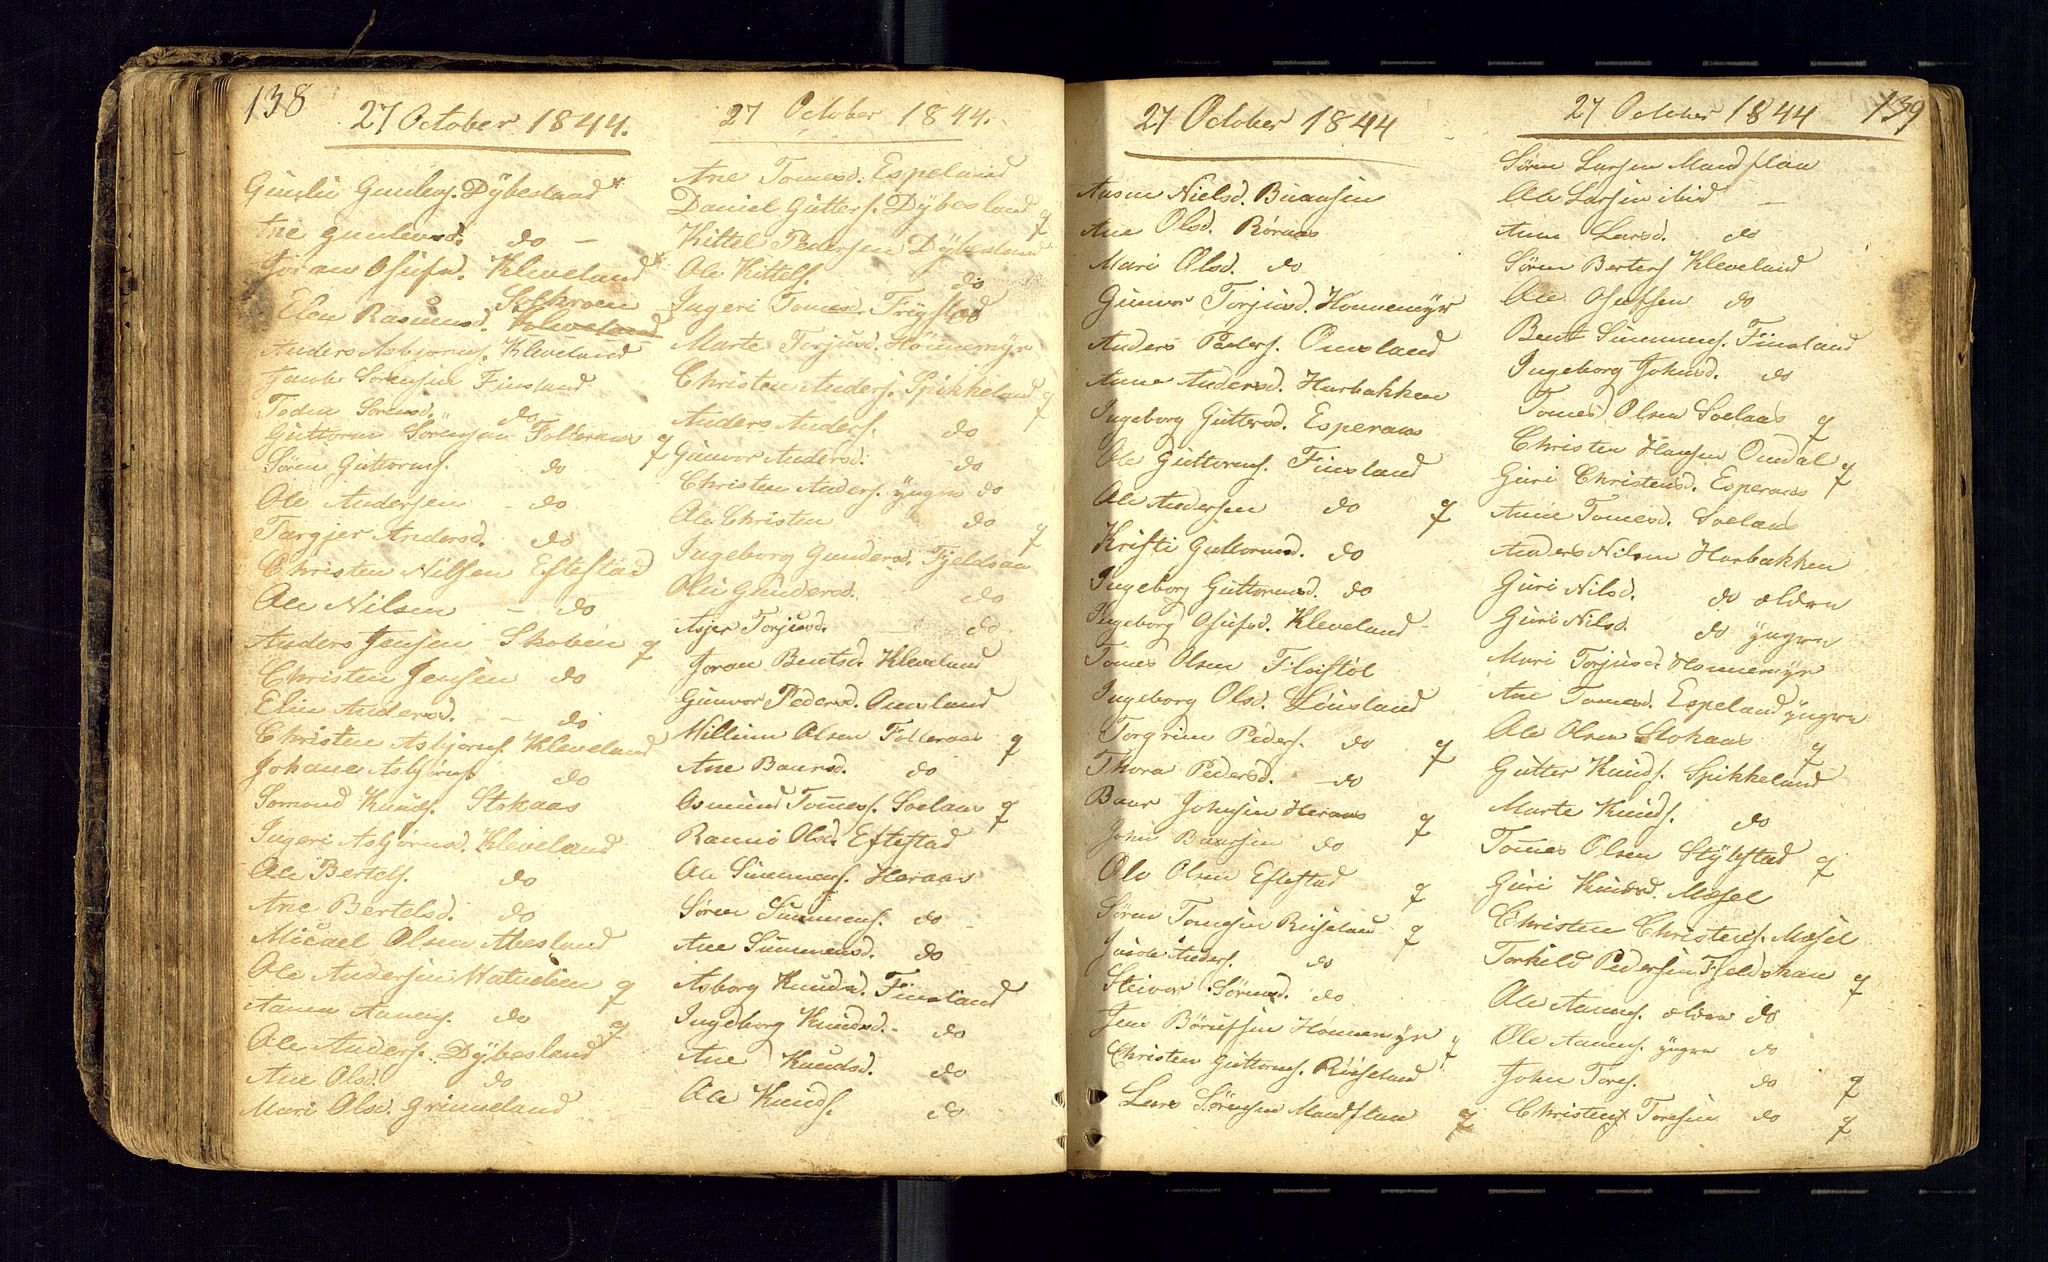 138
27 October 1844.
Gunlei Gunleifs. Dÿbesland *
Ane Gunleivsd. do –
Joran Osufsd. Kleveland *
Solkroen
Elen Rasmusd. Kleveland
Anders Asbjorns. Kleveland
Jacob Sörensen Finsland
Todne Sörensd. do
Guttorm Sörensen Folleraas q
Sören Guttorms. do
Ole Andersen – do
Targjer Andersd. do
Christen Nilsen Eftestad
Ole Nilsen – do
Anders Jensen Skoben q
Christen Jensen do
Elin Andersd. – do
Christen Asbjorns. Kleveland
Johane Asbjörns. do
Somond Knuds. Stokaas
Ingeri Asbjörnsd. Kleveland
Ole Bertels. do
Ane Bertelsd. do
Micael Olsen Abesland
Ole Andersen q
Aanen Aanens. do q
Ole Anders. Dÿbesland
Ane Olsd. do
Mari Olsd. Grimeland
27 October 1844.
Ane Tomesd. Espeland
Daniel Gutters. Dÿbesland q
Kittel Pedersen Dÿbesland
Ole Kittels. do
Ingeri Tomesd. Frÿstad
Marte Torjusd. Honnemÿr
Christen Anders. Spikkeland q
Anders Anders. do
Gunvor Andersd. do
Christen Anders. ÿngre do
Ole Christen do q
Ingeborg Gundersd. Fjeldsaa
Olu Gundersd. do
Asjer Torjusd. do
Joran Bentsd. Kleveland
Gunvor Pedersd. Omsland
Willum Olsen Folleraas q
Ane Baarsd. do
Osmund Tomes. Soelaas q
Rannei Olsd. Eftestad
Ole Simmens. Heraas
Sören Simmens. do
Ane Simmensd. do
Asborg Knudsd. Finsland
Ingeborg Knudsd. do
Ane Knudsd. do
Ole Knuds. do
27 October 1844
Aasne Nielsd. Buansen
Ane Olsd. Röraas
Mari Olsd. do
Gunvor Torjusd. Honnemÿr
Anders Peders. Omsland
Anne Andersd. Harbakken
Ingeborg Guttersd. Esperaas
Ole Guttorms. Finsland
Ole Andersen do q
Kristi Guttormsd. do
Ingeborg Guttormsd. do
Ingeborg Osufsd. Kleveland
Tomes Olsen Floistöl
Ingeborg Olsd. Linsland
Torgrim Peders. do q
Thora Pedersd. – do
Baar Johnsen Heraas q
John Baarsen do
Ole Olsen Eftestad q
Sören Tomesen Rüseland q
Jacob Anders. do
Steivor Sörensd. do
Jens Börufsen Honnemÿr q
Christen Guttorms. Rüseland
Lars Sörensen Mandflaa q
27 October 1844
139
Sören Larsen Mandflaa
Ole Larsen ibid –
Anne Larsd. do
Sören Berters. Kleveland
Ole Osufsen do
Bent Simmens. Finsland
Ingeborg Johnsd. do
Tomes Olsen Soelaas q
Christen Hansen Omdal q
Guri Christensd. Esperaas
Anne Tomesd. Soelaas
Anders Nilsen Harbakken
Guri Nilsd. do ældre
Guri Nilsd. do ÿngre
Mari Torjusd. Honnemÿr
Ane Tomesd. Espeland ÿngre
Ole Olsen Stokaas q
Gutter Knuds. Spikkeland
Marte Knuds. do
Tomes Olsen Stÿlestad q
Guri Knudsd. Mæsel
Christen Christens. Mæsel
Torkild Pedersen Fjeldskaa q
Ole Aanens. ældre do
Ole Aanens. ÿngre do
John Tores. do q
Christen Toresen do q